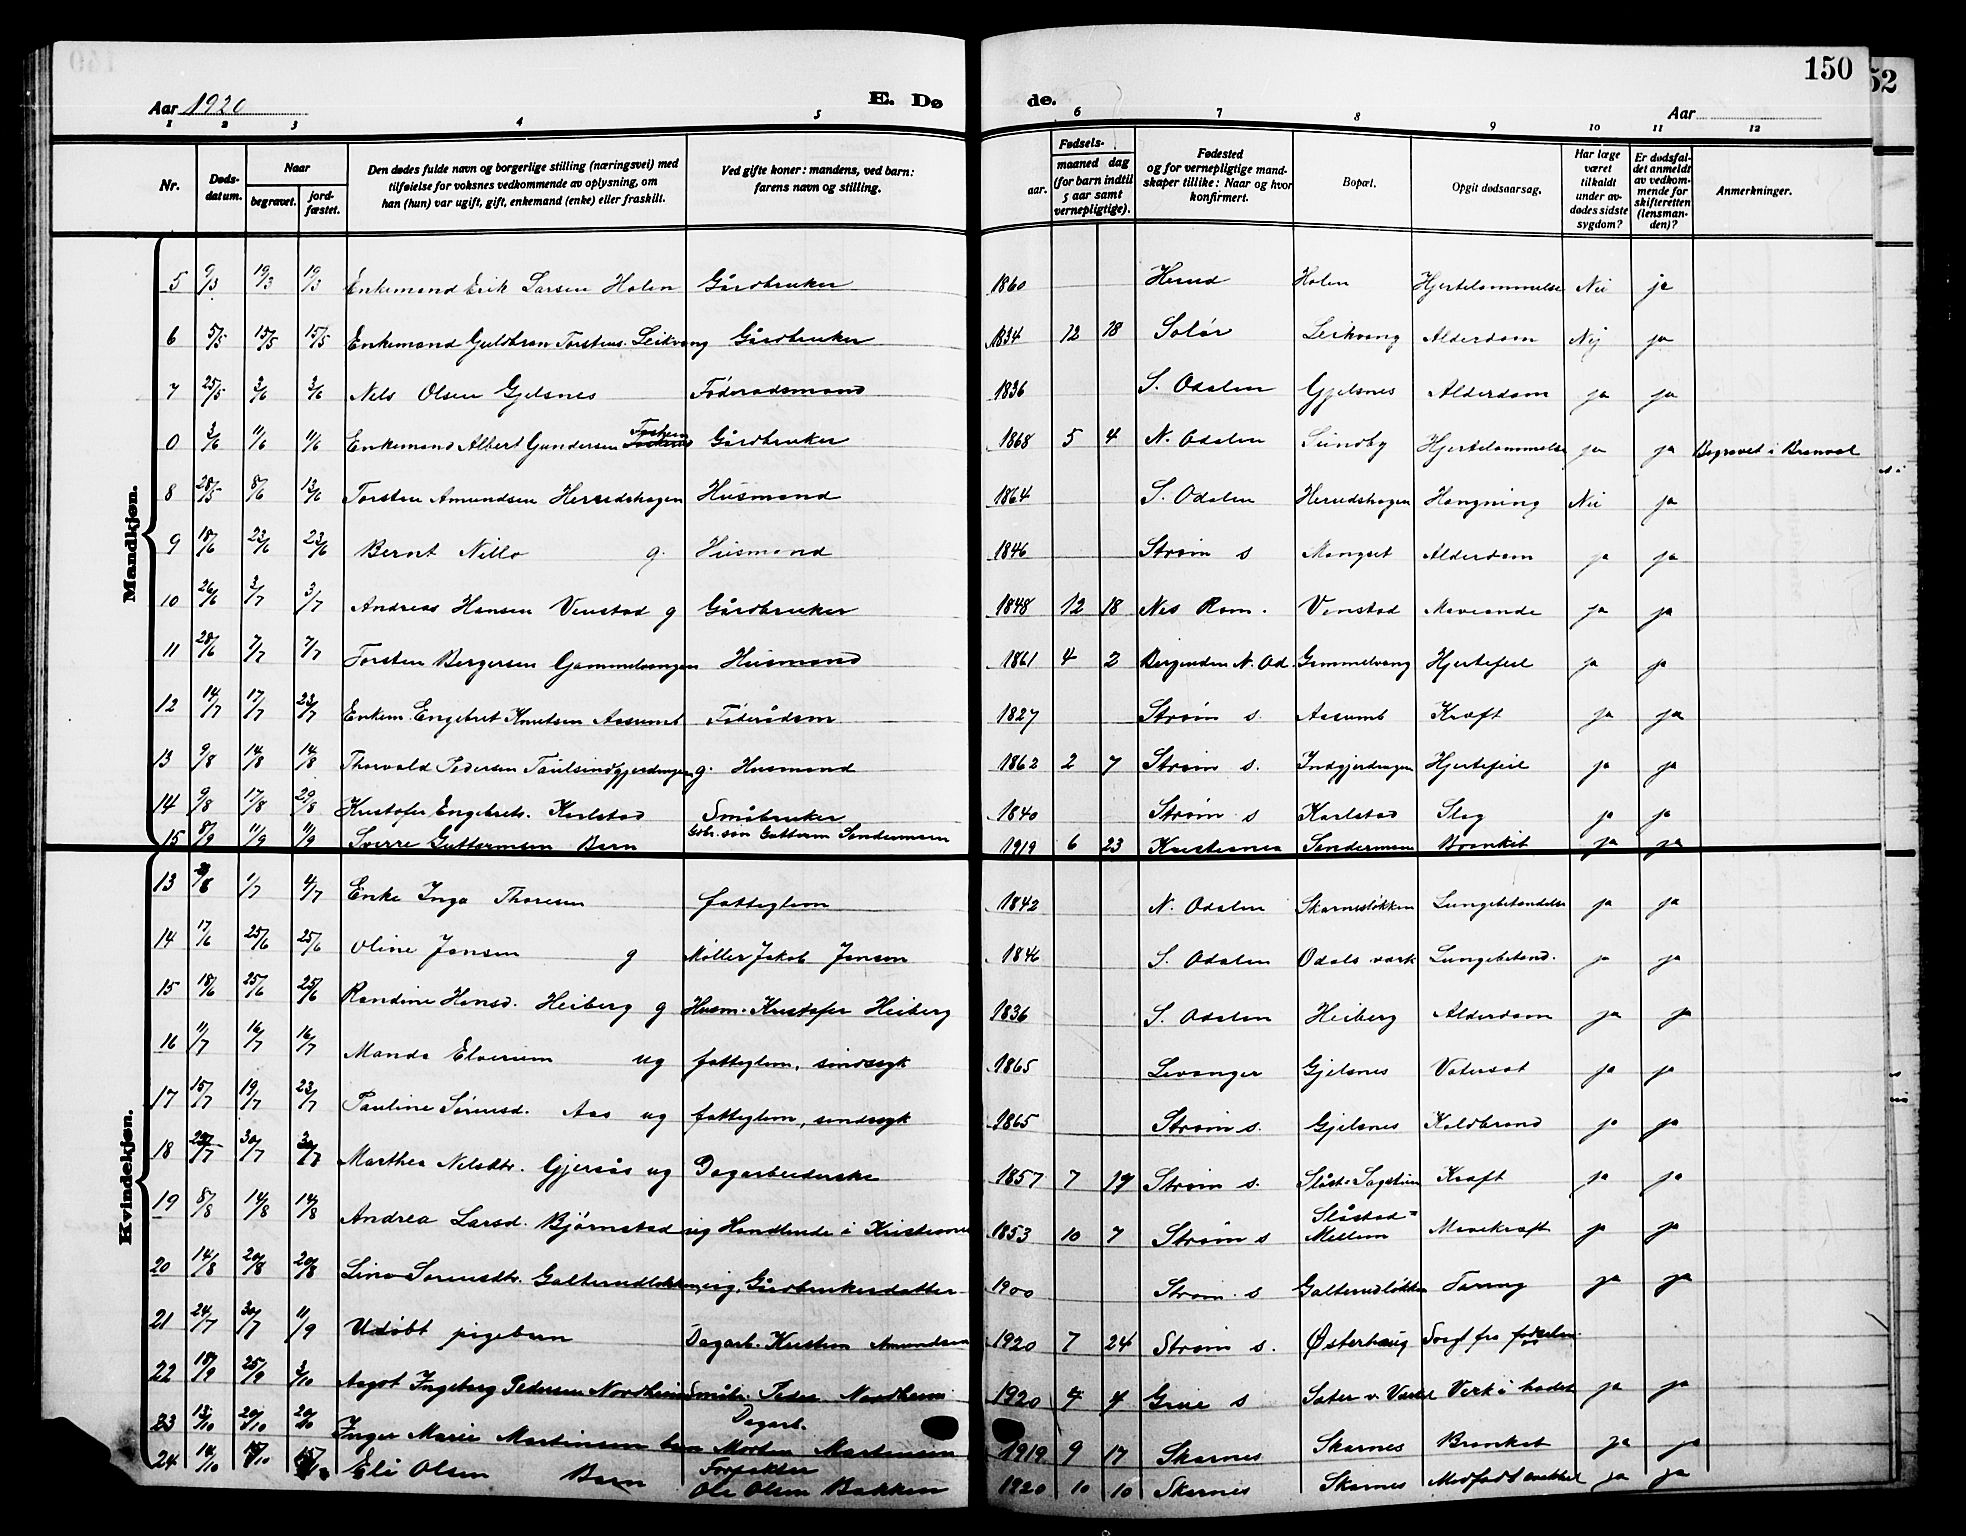 150
52
Aar 1920
E. Dø
de.
Aar
1 2 3 4 5 6 7 8 9 10 11 12
Nr. Døds-datum. Naar begravet. jord-fæstet. Den dødes fulde navn og borgerlige stilling (næringsvei) med tilføielse for voksnes vedkommende av oplysning, om han (hun) var ugift, gift, enkemand (enke) eller fraskilt. Ved gifte koner: mandens, ved barn: farens navn og stilling. aar. Fødsels- maaned dag (for barn indtil 5 aar samt vernepligtige). Fødested og for vernepligtige mand-skaper tillike: Naar og hvor konfirmert. Bopæl. Opgit dødsaarsag. Har læge været tilkaldt under av-dødes sidste sygdom? Er dødsfal-det anmeldt av vedkom-mende for skifteretten (lensman-den)? Anmerkninger.
Mandkjøn.
5 9/3 19/3 19/3 Enkemand Erik Larsen Holen Gårdbruker 1860 Herud Holen Hjertelammelse Nei ja
6 5/5 15/5 15/5 Enkemand Guldbran Torstens. Leikvang Gårdbruker 1834 12 18 Solør Leikvang Alderdom Nej ja
7 25/5 3/6 3/6 Nils Olsen Gjelsnes Føderadsmand 1836 S. Odalen Gjelsnes Alderdom ja ja
0 3/6 11/6 11/6 Enkemand Albert Gundersen Gårdbruker 1868 5 4 N. Odalen Sundby Hjertelammelse ja ja Begravet i Branval
8 28/5 8/6 13/6 Torsten Amundsen Herudshagen Husmand 1864 S. Odalen Herudshagen Hangning Nei ja
9 18/6 23/6 23/6 Bernt Nillo g. Husmand 1846 Strøm s Mangset Alderdom ja ja
10 26/6 3/7 3/7 Andreas Hansen Venstad g Gårdbruker 1848 12 18 Nes Rom. Venstad Maveonde ja ja
11 28/6 7/7 7/7 Torsten Bergersen Gammelvangen Husmand 1861 4 2 N. Od. Gammelvang Hjertefeil ja ja
12 14/7 17/7 23/7 Enkem. Engebret Knutsen Aasumb Føderådsm 1827 Strøm s. Aasumb Kræft ja ja
13 9/8 14/8 14/8 Thorvald Pedersen g. Husmand 1862 2 7 Strøm s. Indgjerdingen Hjertefeil ja ja
14 9/8 17/8 29/8 Kristofer Engebrets. Karlstad Småbruker 1840 Strøm s Karlstad Slag ja ja
15 8/9 11/9 11/9 Sverre Guttormsen Barn Gbr. søn Guttorm Sandermoen 1919 6 23 Kristiania Sandermoen Bronkit ja ja
Kvindekjøn.
13 1/7 4/7 Enke Inga Thoresen fattiglem 1842 N. Odalen Skarnesløkken Lungebetændelse ja ja
14 17/6 25/6 25/6 Oline Jansen g Møller Jakob Jansen 1846 S. Odalen Odals værk Lungebetænd. ja ja
15 18/6 25/6 25/6 Randine Hansd. Heiberg g Husm. Kristofer Heiberg 1836 S. Odalen Heiberg Alderdom ja ja
16 11/7 16/7 16/7 Manda Elverum ug fattiglem, sindssyk 1865 Levanger Gjelsnes Vatersot ja ja
17 15/7 19/7 23/7 Pauline Sørensd. Aas ug fattiglem, sindssyk 1865 Strøm s. Gjelsnes Koldbrand ja ja
18 30/7 Marthea Nilsdtr. Gjersås ug Dagarbeiderske 1857 7 17 Strøm s. Slåst. Sagstuen Kræft ja ja
19 8/8 14/8 14/8 Andrea Larsd. Bjørnstad ug Handlende i Kristiania 1853 10 7 Strøm s Slåstad= Mellem Mavekræft ja ja
20 14/8 20/8 20/8 Lina Sørensdtr. Galterudløkken, ug. Gårdbrukerdatter 1900 Strøm s Galterudløkken Tæring ja ja
21 24/7 30/7 11/9 Udøbt pigebarn Dagarb. Kristian Amundsen 1920 7 24 Strøm s. Østerhaug Svagt fra fødselen
22 18/9 25/9 3/10 Aagot Ingeborg Pedersen Nordheim Småbr. Peder Nordheim 1920 4 4 Grue s Sæter v. Værk i hodet ja ja
23 13/10 20/10 20/10 Inger Marie Martinsen barn Dagarb. Morten Martinsen 1919 9 17 Skarnes Skarnes Bronkit ja ja
24 14/10 Eli Olsen Barn Forpakter Ole Olsen Bakken 1920 10 10 Skarnes Skarnes Medfødt svakhet ja ja